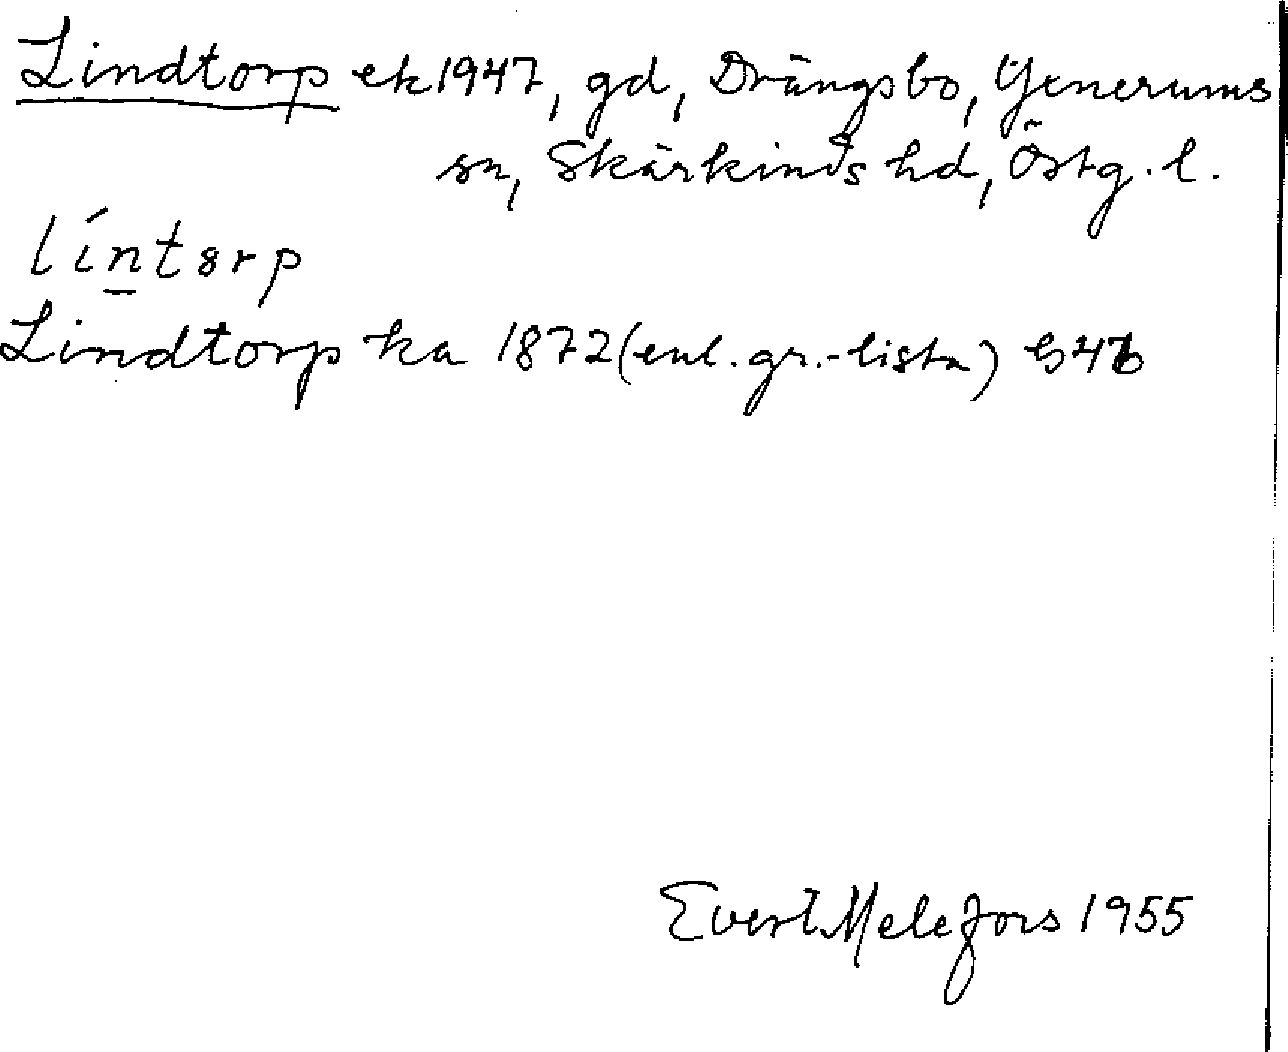 Lindtorp ek 1947, gd, Drängsbo, Yxnerums
sn, Skärkinds hd, Östg. l.
Lindtorp ka 1872 (enl. gr.-lista)
Evert Melefors 1955